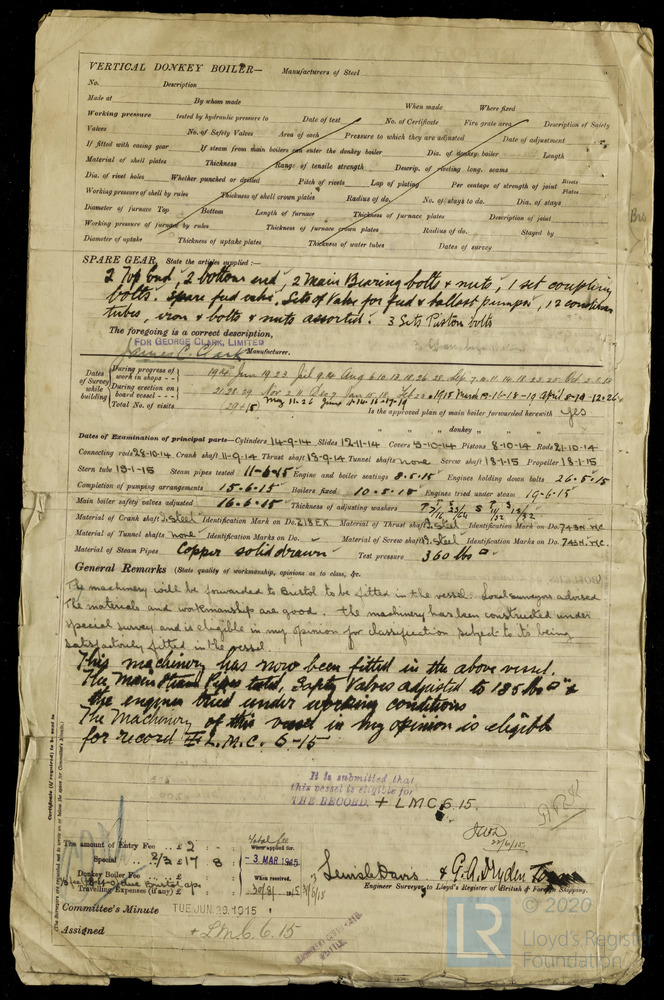 VERTICAL DONKEY BOILER— Manufacturers of Steel
No. Description
Made at By whom made When made Where fixed
Working pressure tested by hydraulic pressure to Date of test No. of Certificate Fire grate area Description of Safety
Valves No. of Safety Valves Area of each Pressure to which they are adjusted Date of adjustment
If fitted with easing gear If steam from main boilers can enter the donkey boiler Dia. of donkey boiler Length
Material of shell plates Thickness Range of tensile strength Descrip. of riveting long. seams
Dia. of rivet holes Whether punched or drilled Pitch of rivets Lap of plating Per centage of strength of joint Rivets Plates
Working pressure of shell by rules Thickness of shell crown plates Radius of do. No. of stays to do. Dia. of stays
Diameter of furnace Top Bottom Length of furnace Thickness of furnace plates Description of joint
Working pressure of furnace by rules Thickness of furnace crown plates Radius of do. Stayed by
Diameter of uptake Thickness of uptake plates Thickness of water tubes Dates of survey
SPARE GEAR. State the articles supplied:—
2 Top end, 2 bottom end, 2 Main Bearing bolts & nuts, 1 set coupling
bolts. Spare feed valve. Sets of Valves for feed & ballast pumps, 12 condenser
tubes, iron & bolts & nuts assorted. 3 Sets Piston bolts
The foregoing is a correct description,
FOR GEORGE CLARK, LIMITED
James C. Clark Manufacturer.
Dates of Survey while building
During progress of work in shops - - 1914 Jun 19 23 Jul 9 Aug 6 10 18 26 28 Sep 7 11 14 18 23 25 Oct 2 5
During erection on board vessel - - - 21 28 29 Nov 2 11 Dec 7 Jan 15 Feb 23 1915 March 13-16-18-19 April 8-19-12-26
Total No. of visits 29+15 May 11-26 June 14-11-17-19
Is the approved plan of main boiler forwarded herewith yes
" " " donkey " " "
Dates of Examination of principal parts—Cylinders 14-9-14 Slides 12-11-14 Covers 5-10-14 Pistons 8-10-14 Rods 21-10-14
Connecting rods 28-10-14 Crank shaft 11-9-14 Thrust shaft 18-9-14 Tunnel shafts none Screw shaft 18-1-15 Propeller 18-1-15
Stern tube 15-1-15 Steam pipes tested 11-6-15 Engine and boiler seatings 8-5-15 Engines holding down bolts 26-5-15
Completion of pumping arrangements 15-6-15 Boilers fixed 10-5-15 Engines tried under steam 19-6-15
Main boiler safety valves adjusted 16-6-15 Thickness of adjusting washers
Material of Crank shaft I. Steel Identification Mark on Do. 218 EK Material of Thrust shaft I. Steel Identification Mark on Do. 743N. HC
Material of Tunnel shafts none Identification Marks on Do. Material of Screw shafts I. Steel Identification Marks on Do. 743N. HC.
Material of Steam Pipes Copper solid drawn Test pressure 360 lbs □"
General Remarks (State quality of workmanship, opinions as to class, &c.
The machinery will be forwarded to Bristol to be fitted in the vessel. Local surveyors advised
The materials and workmanship are good. The machinery has been constructed under
special survey and is eligible in my opinion for classification subject to its being
satisfactorily fitted in the vessel.
This machinery has now been fitted in the above vessel.
The Main Steam Pipes tested, Safety Valves adjusted to 185 lbs □" &
the engines tried under working conditions
The Machinery of this vessel in my opinion is eligible
for record + L.M.C. 6-15
Certificate (if required) to be sent to
(The Surveyors are requested not to write on or below the space for Committee's Minute.)
It is submitted that
this vessel is eligible for
THE RECORD. + LMC 6.15.
22/6/15
The amount of Entry Fee .. £ 2 : :
Special .. 2/3 £ 17 : 8 :
Donkey Boiler Fee .. £ : :
Travelling Expenses (if any) £ : :
Total fee
When applied for.
- 3 MAR 1915
When received.
Lewis Davis & G. A. Dryden
Engineer Surveyor to Lloyd's Register of British & Foreign Shipping.
Committee's Minute TUE. JUN. 29. 1915
Assigned + LMC 6.15
© 2020
LR Lloyd's Register
Foundation